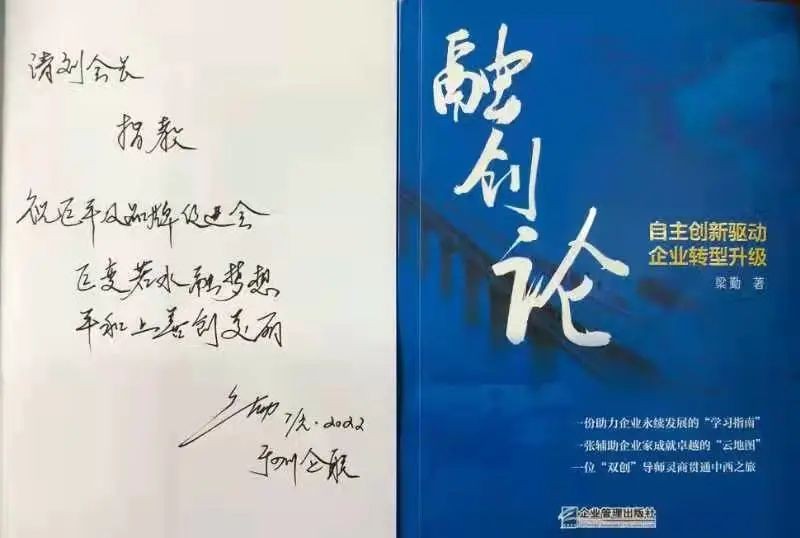 请刘会长
指教
祝巨平及品牌促进会
巨变若水融梦想
平和上善创美丽
7/元·2022
融创论
自主创新驱动
企业转型升级
梁勤 著
一份助力企业永续发展的“学习指南”
一张辅助企业家成就卓越的“云地图”
一位“双创”导师灵商贯通中西之旅
企业管理出版社